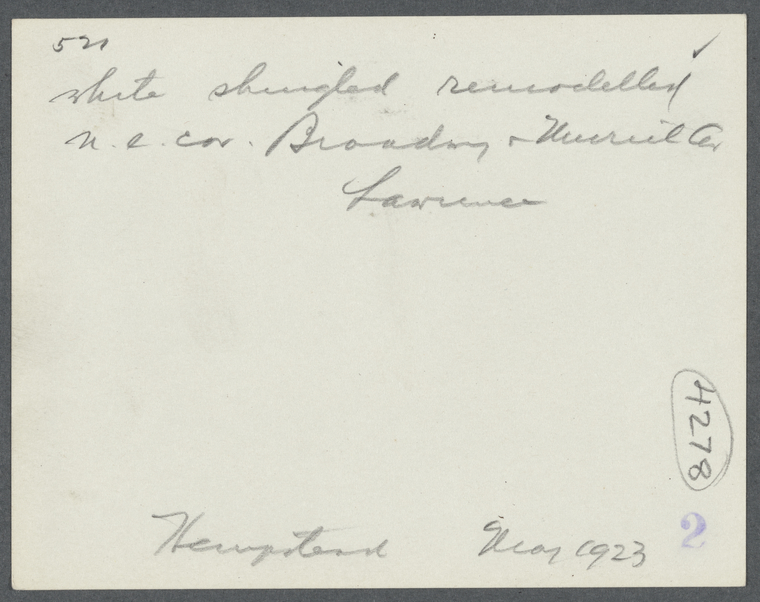 521 ✓
white shingled remodelled
n.e. cor. Broadway & Muriel Av
Lawrence
4278
Hempstead May 1923
2